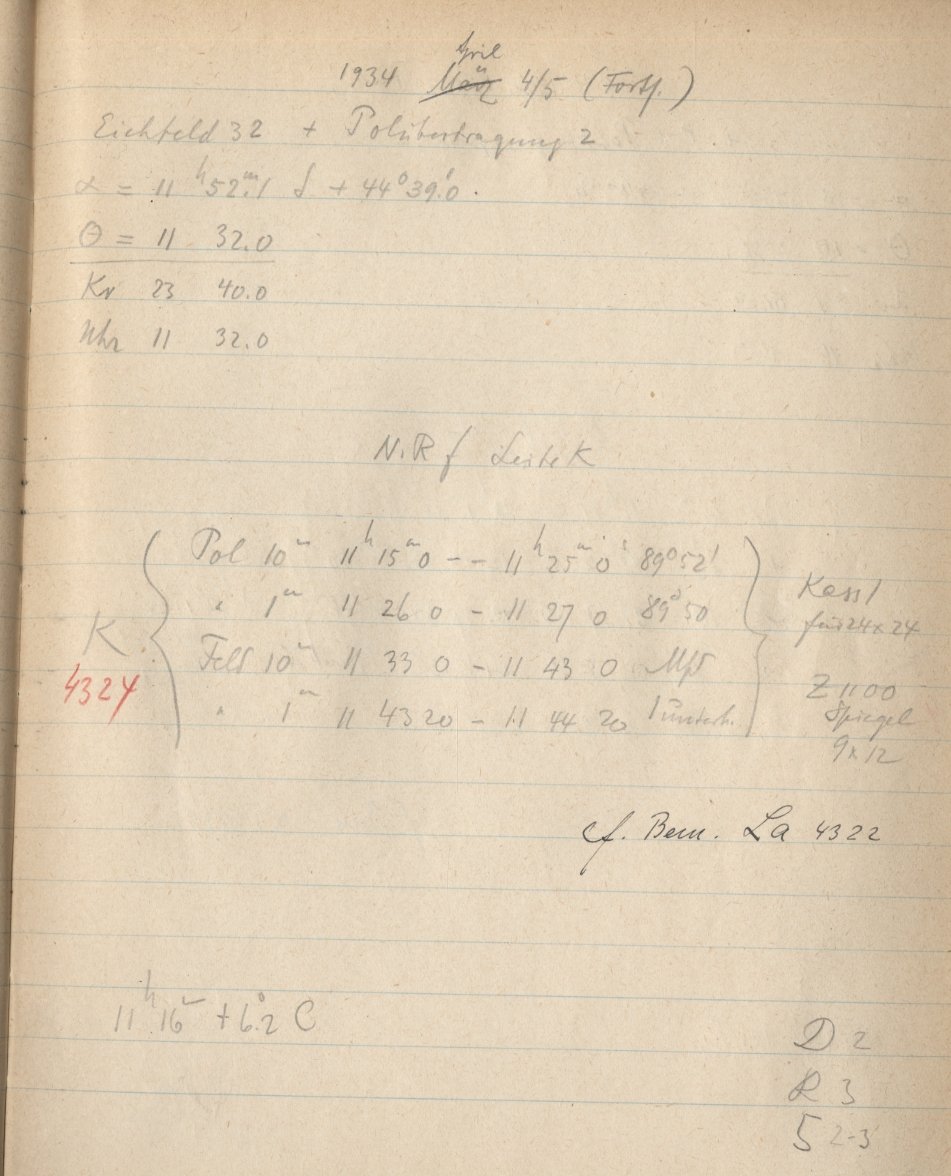 April
1934 März 4/5 (Forts.)
Eichfeld 32 + Polübertragung 2
α = 11 h 52 m. 1 δ + 44° 39.'0
Θ = 11 32.0
Kr 23 40.0
Uhr 11 32.0
N.R f
Pol 10 m 11 h 15 m 0 -- 11 h 25 m 0 s 89° 52'
" 1 m 11 26 0 - 11 27 0 89° 50
Feld 10 m 11 33 0 - 11 43 0
" 1 m 11 43 20 - 11 44 20
K
4324
Kass 1
für 24 x 24
Z 1100
Spiegel
9 x 12
cf. Bem. La 4322
11 h 16 m + 6.°2 C
D 2
R 3
S 2-3